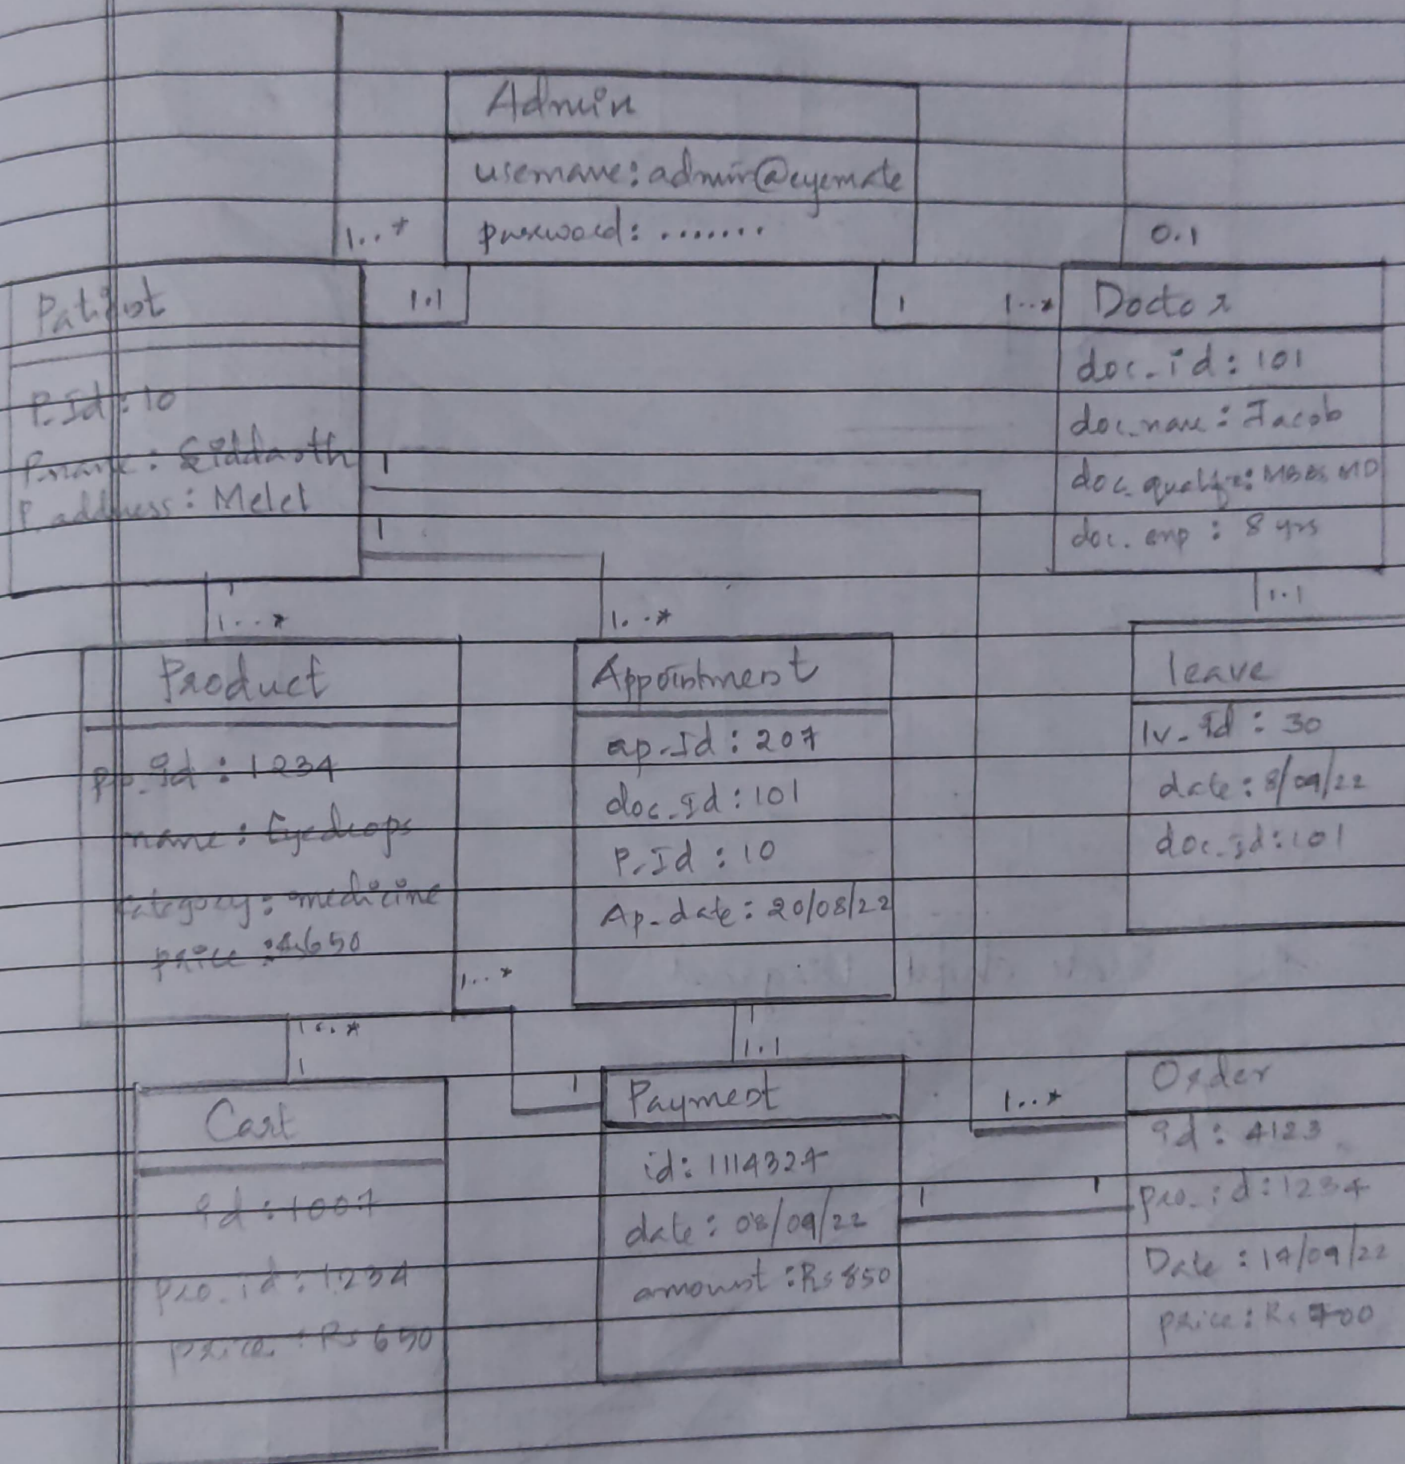 Admin
username: admin@eyemate
password: .......
1..*
0.1
Patient
1.1
1
1..*
Doctor
P_Id: 10
Pname: Siddarth
P_address: Melel
doc_id: 101
doc_name: Jacob
doc_qualfx: MBBS MD
doc_exp: 8 yrs
1
1
1
1..*
1..*
1.1
Product
pro_id: 1234
name: Eyedrops
category: medicine
price: Rs650
Appointment
ap_Id: 207
doc_id: 101
P_Id: 10
Ap_date: 20/08/22
leave
lv_id: 30
date: 8/09/22
doc_id: 101
1..*
1..*
1
1
1.1
1
1..*
Cart
id: 1007
Pro_id: 1234
price: Rs 650
Payment
id: 1114327
date: 08/09/22
amount: Rs 850
1
1
Order
id: 4123
pro_id: 1234
Date: 14/09/22
price: Rs 700